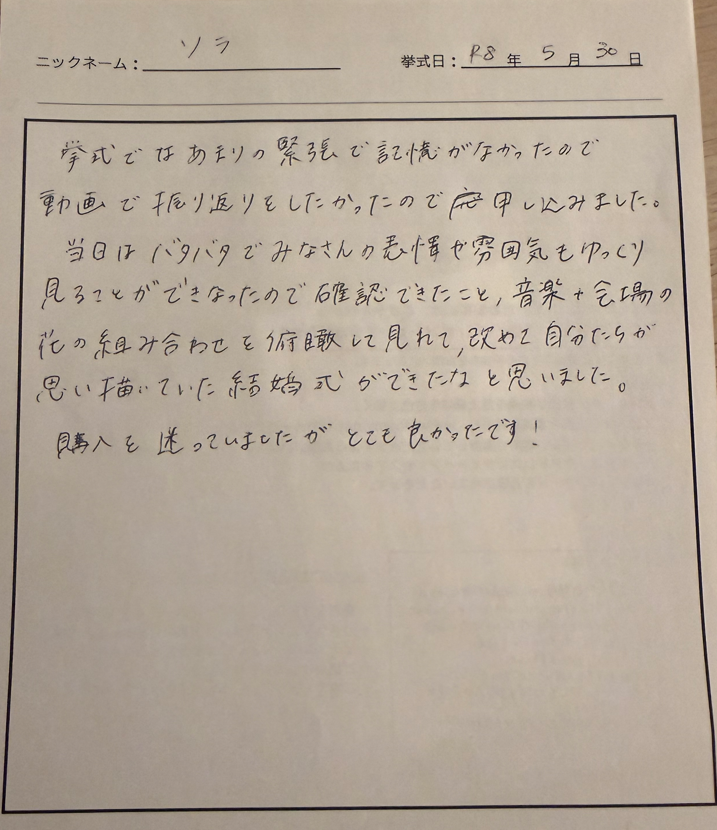 ニックネーム: ソラ 挙式日: R8 年 5 月 30 日
挙式ではあまりの緊張で記憶がなかったので
動画で振り返りをしたかったので申し込みました。
当日はバタバタでみなさんの表情や雰囲気もゆっくり
見ることができなったので確認できたこと、音楽+会場の
花の組み合わせを俯瞰して見れて、改めて自分たちが
思い描いていた結婚式ができたなと思いました。
購入を迷っていましたがとても良かったです!